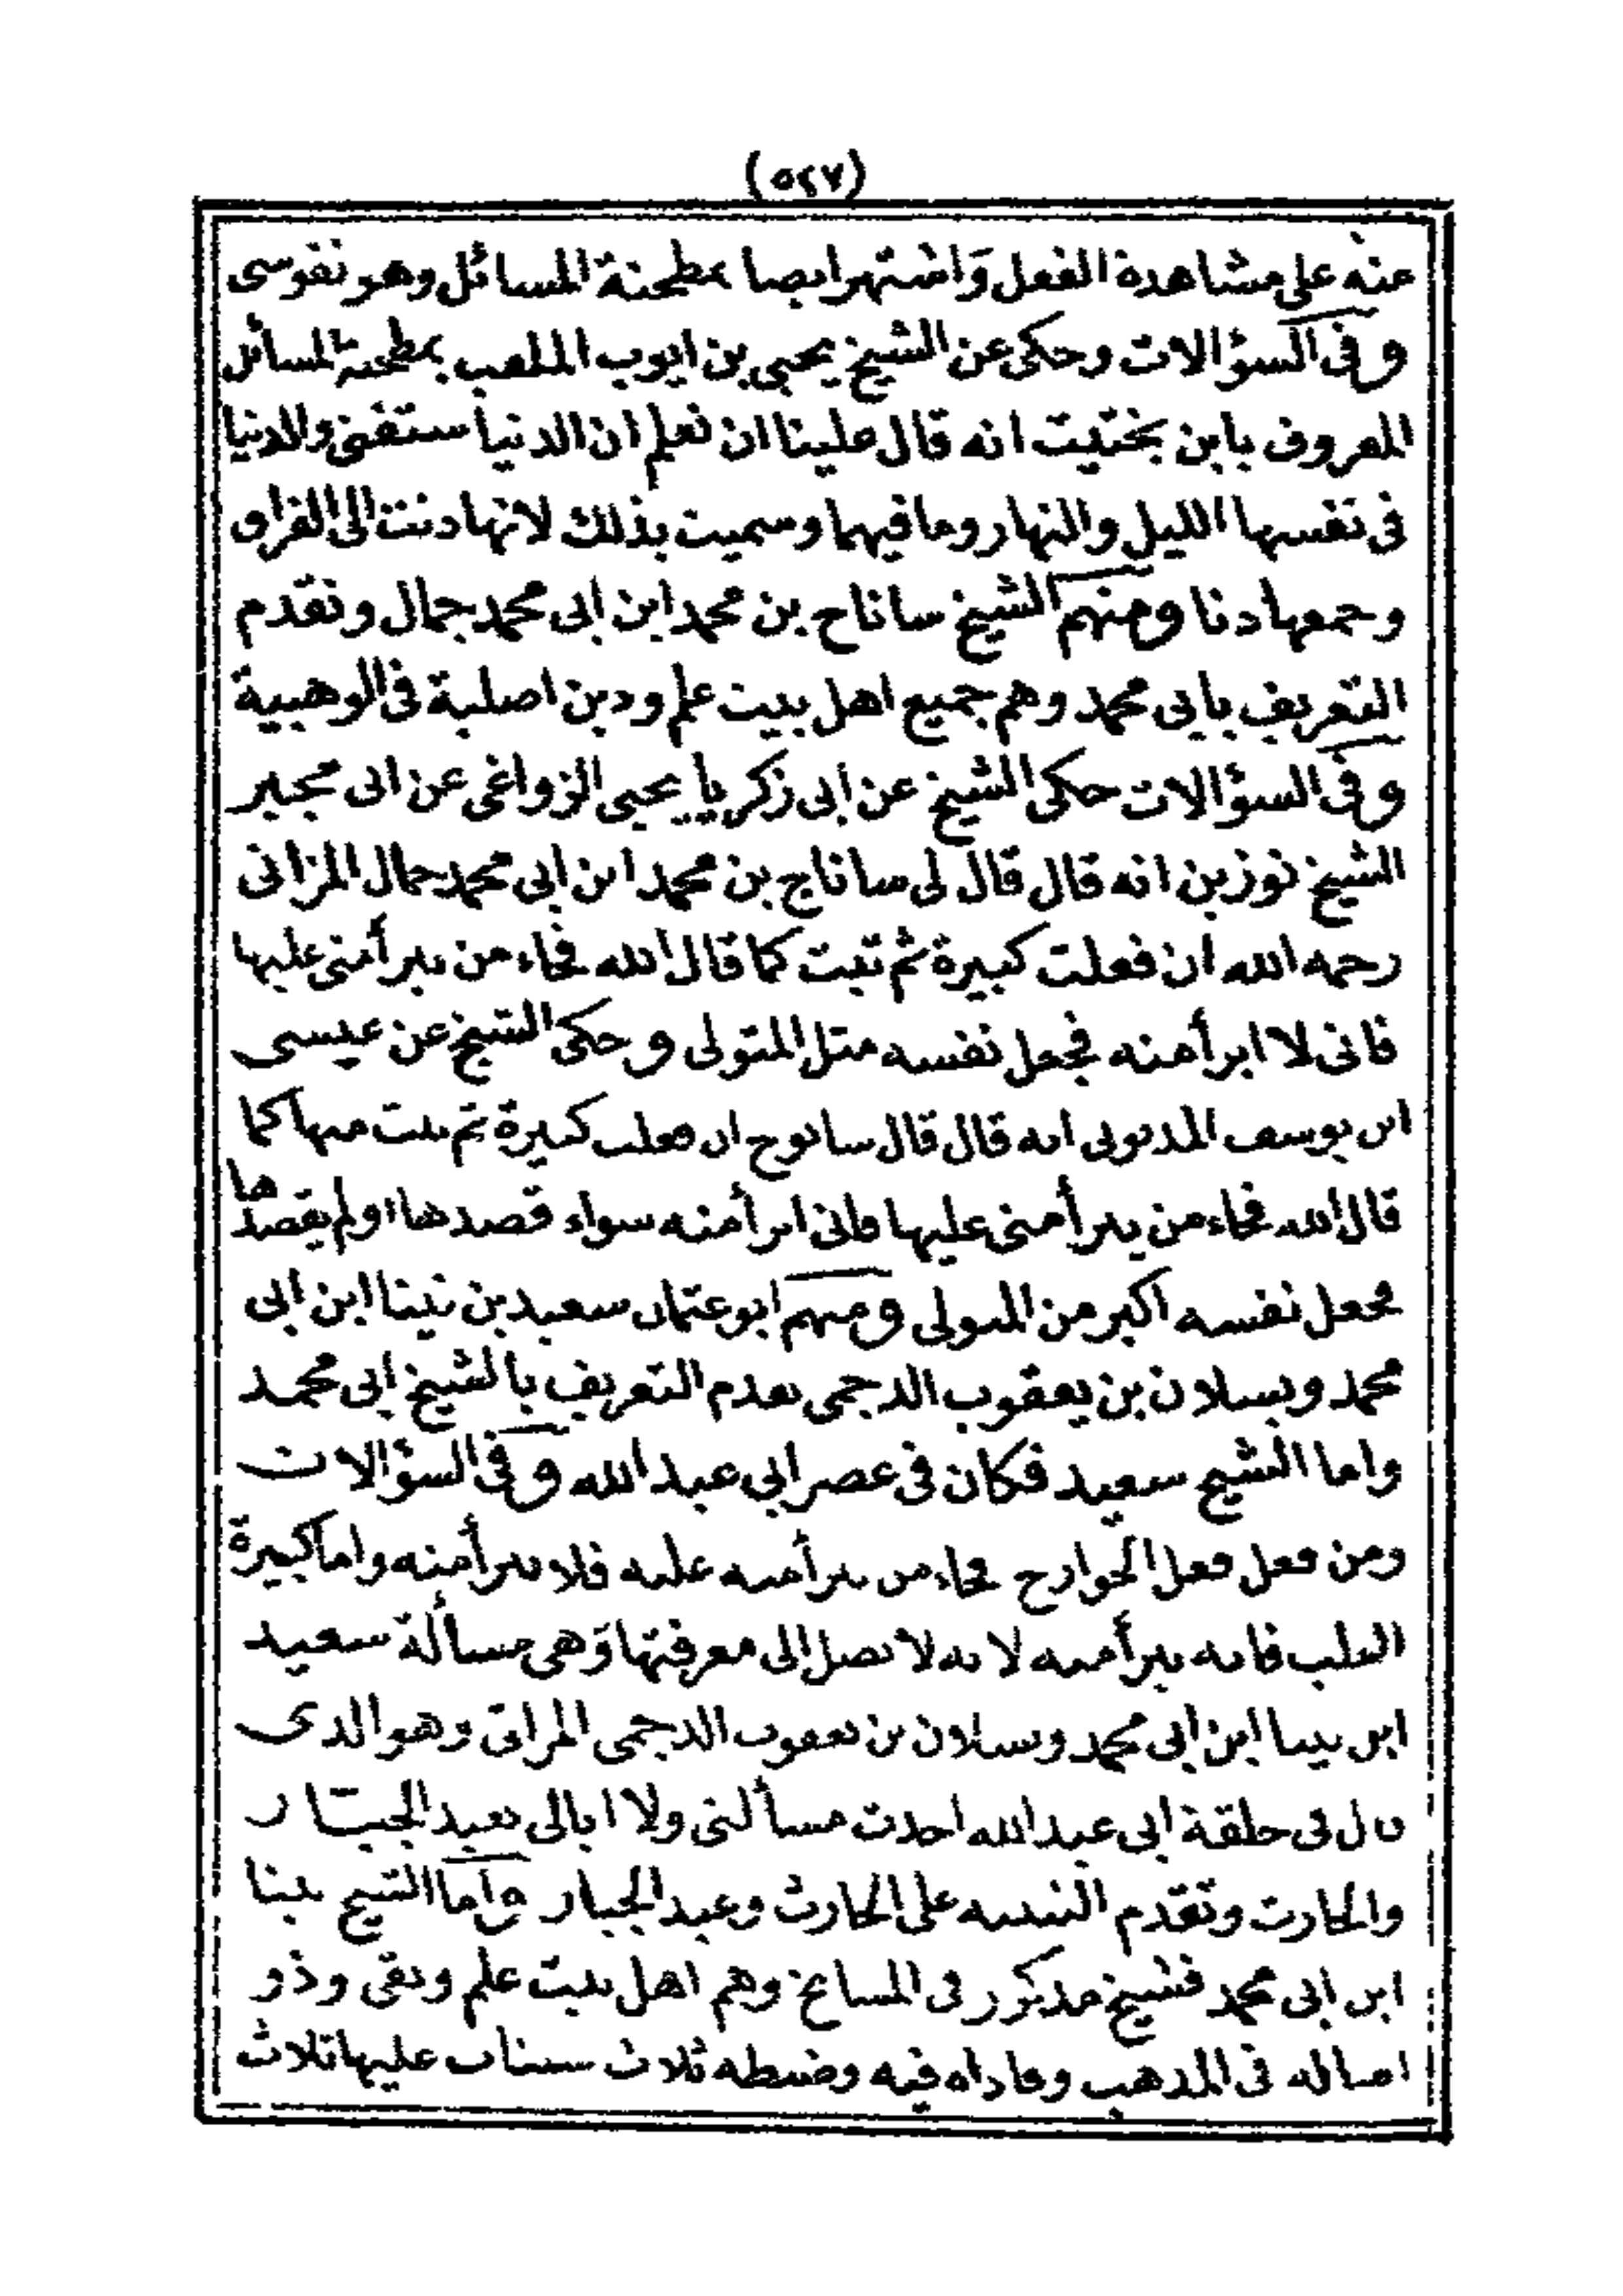 (٥٢٧)
عنه على مشاهدة الفعل وَاشتهر ايضا بمطحنة المسائل وهو نفوسى
وفى السؤالات وحكى عن الشيخ يحيى بن ايوب الملقب بمطحنة المسائل
المعروف بابن بختيت انه قال علينا ان نعلم ان الدنيا ستفنى والدنيا
فى نفسها الليل والنهار وما فيهما وسميت بذلك لانها دنت الى الفراق
وجمعها دنا ومنهم الشيخ ساناح بن محمد ابن ابى محمد جمال وتقدم
التعريف بابى محمد وهم جميع اهل بيت علم ودين اصلية فى الوهبية
وفى السؤالات حكى الشيخ عن ابى زكريا يحيى الزواغى عن ابى مجبر
الشيخ توزين انه قال قال لى ساناج بن محمد ابن ابى محمد جمال المزاتى
رحمه الله ان فعلت كبيرة ثم تبت كما قال الله فجاء من يبرأ منى عليها
فانى لا ابرأ منه فجعل نفسه مثل المتولى وحكى الشيخ عن عيسى
ابن يوسف المديونى انه قال قال سانوح ان فعلت كبيرة ثم تبت منها كما
قال الله فجاء من يبرأ منى عليها فانى ابرأ منه سواء قصدها او لم يقصدها
فجعل نفسه اكبر من المتولى ومنهم ابو عثمان سعيد بن بَينا ابن ابى
محمد ويسلان بن يعقوب الدجمى تقدم التعريف بالشيخ ابى محمد
واما الشيخ سعيد فكان فى عصر ابى عبد الله وفى السؤالات
ومن فعل فعل الجوارح فجاء من يبرأ منه عليه فلا يبرأ منه واما كبيرة
القلب فانه يبرأ منه لانه لا تصل الى معرفتها وَهى مسألة سعيد
ابن بينا ابن ابى محمد ويسلان بن يعقوب الدجمى المزاتى وهو الذى
قال فى حلقة ابى عبد الله اخذت مسألتى ولا ابالى بعبد الجبّار
والحارث وتقدم التنبيه على الحارث وعبد الجبار واما الشيخ بينا
ابن ابى محمد فشيخ مذكور فى المشايخ وهم اهل بيت علم وتقى وذو
اصاله فى المذهب وما داه فيه وضبطه ثلاث سنات عليها ثلاث